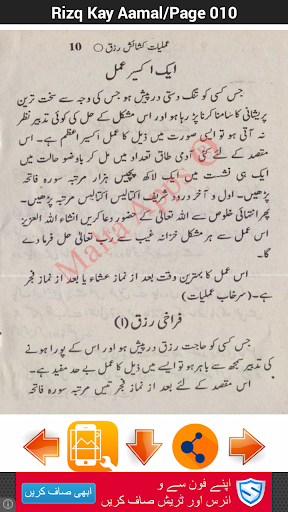 Rizq Kay Aamal/Page 010
عملیات کشائش رزق 10
ایک اکسیر عمل
جس کسی کو تنگ دستی درپیش ہو جس کی وجہ سے سخت ترین
پریشانی کا سامنا کرنا پڑ رہا ہو اور اس مشکل کے حل کی کوئی تدبیر نظر
نہ آتی ہو تو ایسی صورت میں ذیل کا عمل اکسیر اعظم ہے۔ اس
مقصد کے لئے کئی آدمی طاق تعداد میں مل کر باوضو حالت میں
ایک ہی نشست میں ایک لاکھ پچیس ہزار مرتبہ سورہ فاتحہ
پڑھیں۔ اول و آخر درود شریف اکتالیس اکتالیس مرتبہ پڑھیں۔
پھر انتہائی خلوص سے اللہ تعالیٰ کے حضور دعا کریں انشاء اللہ العزیز
اس عمل سے ہر مشکل خزانہ غیب سے رب تعالیٰ حل فرما دے
گا۔
اس عمل کا بہترین وقت بعد از نماز عشاء یا بعد از نماز فجر
ہے۔ (سرخاب عملیات)
فراخی رزق (۱)
جس کسی کو حاجت رزق درپیش ہو اور اس کے پورا ہونے
کی تدبیر سمجھ سے باہر ہو تو ایسے میں ذیل کا عمل بے حد مفید ہے۔
اس مقصد کے لئے بعد از نماز فجر تیس مرتبہ سورہ فاتحہ
Malta Apps ©
اپنے فون سے و
ائرس اور ٹریش صاف کریں
ابھی صاف کریں